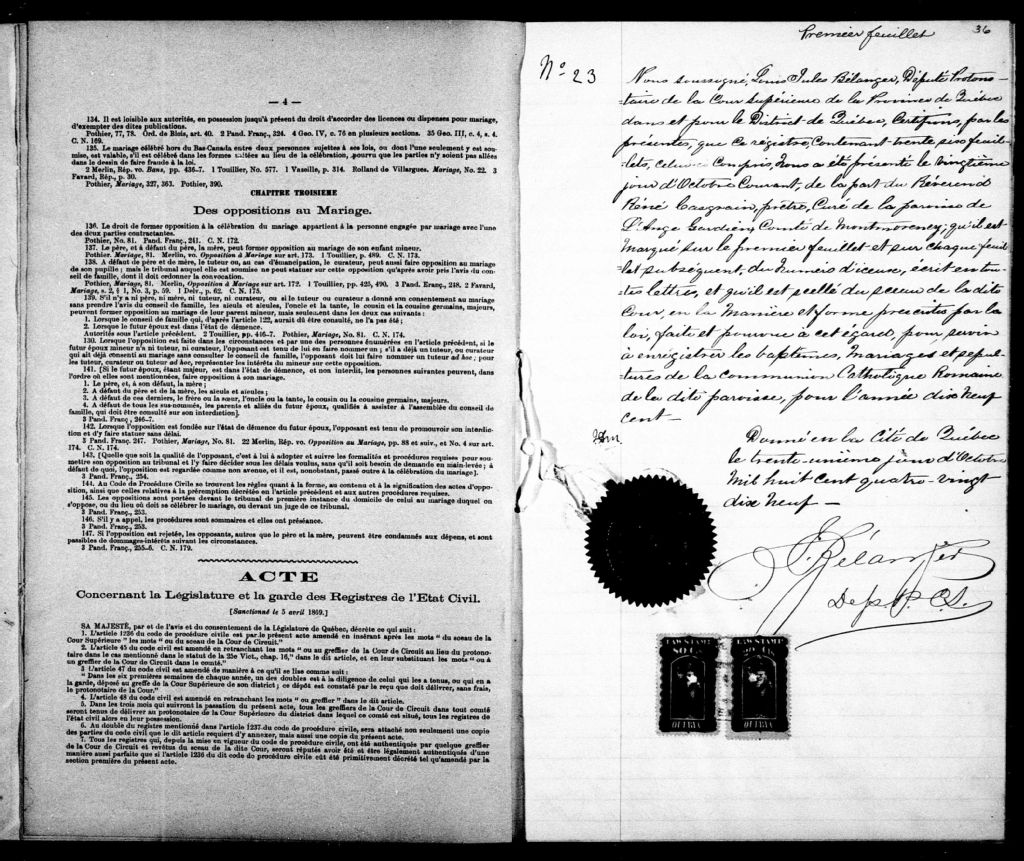 — 4 —
134. Il est loisible aux autorités, en possession jusqu'à présent du droit d'accorder des licences ou dispenses pour mariage,
d'exempter des dites publications.
Pothier, 77, 78. Ord. de Blois, art. 40. 2 Pand. Franç., 324. 4 Geo. IV, c. 76 en plusieurs sections. 35 Geo. III, c. 4, s. 4.
C. N. 169.
135. Le mariage célébré hors du Bas-Canada entre deux personnes sujettes à ses lois, ou dont l'une seulement y est sou-
mise, est valable, s'il est célébré dans les formes usitées au lieu de la célébration, pourvu que les parties n'y soient pas allées
dans le dessin de faire fraude à la loi.
2 Merlin, Rép. vo. Bans, pp. 436-7. 1 Touillier, No. 577. 1 Vazeille, p. 314. Rolland de Villargues. Mariage, No. 22. 3
Favard, Rép., p. 30.
Pothier, Mariage, 327, 363. Pothier, 390.
CHAPITRE TROISIEME
Des oppositions au Mariage.
136. Le droit de former opposition à la célébration du mariage appartient à la personne engagée par mariage avec l'une
des deux parties contractantes.
Pothier, No. 81. Pand. Franç., 241. C. N. 172.
137. Le père, et à défaut du père, la mère, peut former opposition au mariage de son enfant mineur.
Pothier, Mariage, 81. Merlin, vo. Opposition au Mariage sur art. 173. 1 Touillier, p. 489. C. N. 173.
138. A défaut de père et de mère, le tuteur ou, au cas d'émancipation, le curateur, peut aussi faire opposition au mariage
de son pupille; mais le tribunal auquel elle est soumise ne peut statuer sur cette opposition qu'après avoir pris l'avis du con-
seil de famille, dont il doit ordonner la convocation.
Pothier, Mariage, 81. Merlin, Opposition à Mariage sur art. 172. 1 Touillier, pp. 425, 490. 3 Pand. Franç., 248. 2 Favard,
Mariage, s. 2, § 1, No. 3, p. 59. 1 Delv., p. 62. C. N. 175.
139. S'il n'y a ni père, ni mère, ni tuteur, ni curateur, ou si le tuteur ou curateur a donné son consentement au mariage
sans prendre l'avis du conseil de famille, les aïeuls et aïeules, l'oncle et la tante, le cousin et la cousine germains, majeurs,
peuvent former opposition au mariage de leur parent mineur, mais seulement dans les deux cas suivants:
1. Lorsque le conseil de famille qui, d'après l'article 122, aurait dû être consulté, ne l'a pas été;
2. Lorsque le futur époux est dans l'état de démence.
Autorités sous l'article précédent. 2 Touillier, pp. 446-7. Pothier, Mariage, No. 81. C. N. 174.
130. Lorsque l'opposition est faite dans les circonstances et par une des personnes énumérées en l'article précédent, si le
futur époux mineur n'a ni tuteur, ni curateur, l'opposant est tenu de lui en faire nommer un; s'il a déjà un tuteur, ou curateur
qui ait déjà consenti au mariage sans consulter le conseil de famille, l'opposant doit lui faire nommer un tuteur ad hoc; pour
les tuteur, curateur ou tuteur ad hoc, représenter les intérêts du mineur sur cette opposition.
141. [Si le futur époux, étant majeur, est dans l'état de démence, et non interdit, les personnes suivantes peuvent, dans
l'ordre où elles sont mentionnées, faire opposition à son mariage.
1. Le père, et, à son défaut, la mère;
2. A défaut du père et de la mère, les aïeuls et aïeules;
3. A défaut de ces derniers, le frère ou la sœur, l'oncle ou la tante, le cousin ou la cousine germains, majeurs.
4. A défaut de tous les sus-nommés, les parents et alliés du futur époux, qualifiés à assister à l'assemblée du conseil de
famille, qui doit être consulté sur son interdiction].
3 Pand. Franç., 246-7.
142. Lorsque l'opposition est fondée sur l'état de démence du futur époux, l'opposant est tenu de promouvoir son interdic-
tion et d'y faire statuer sans délai.
3 Pand. Franç. 247. Pothier, Mariage, No. 81. 22 Merlin, Rép. vo. Opposition au Mariage, pp. 88 et suiv., et No. 4 sur art.
174. C. N. 174.
143. [Quelle que soit la qualité de l'opposant, c'est à lui à adopter et suivre les formalités et procédures requises pour sou-
mettre son opposition au tribunal et l'y faire décider sous les délais voulus, sans qu'il soit besoin de demande en main-levée; à
défaut de quoi, l'opposition est regardée comme non avenue, et il est, nonobstant, passé outre à la célébration du mariage].
3 Pand. Franç., 254.
144. Au Code de Procédure Civile se trouvent les règles quant à la forme, au contenu et à la signification des actes d'oppo-
sition, ainsi que celles relatives à la préremption décrétée en l'article précédent et aux autres procédures requises.
145. Les oppositions sont portées devant le tribunal de première instance du domicile de celui au mariage duquel on
s'oppose, ou du lieu où doit se célébrer le mariage, ou devant un juge de ce tribunal.
3 Pand. Franç., 253.
146. S'il y a appel, les procédures sont sommaires et elles ont préséance.
3 Pand. Franç., 253.
147. Si l'opposition est rejetée, les opposants, autres que le père et la mère, peuvent être condamnés aux dépens, et sont
passibles de dommages-intérêts suivant les circonstances.
3 Pand. Franç., 255-6. C. N. 179.
ACTE
Concernant la Législature et la garde des Registres de l'Etat Civil.
[Sanctionné le 5 avril 1869.]
SA MAJESTÉ, par et de l'avis et du consentement de la Législature de Québec, décrète ce qui suit:
1. L'article 1236 du code de procédure civile est par le présent acte amendé en insérant après les mots "du sceau de la
Cour Supérieure" les mots "ou du sceau de la Cour de Circuit."
2. L'article 45 du code civil est amendé en retranchant les mots "ou au greffier de la Cour de Circuit au lieu du protono-
taire dans le cas mentionné dans le statut de la 25e Vict., chap. 16," dans le dit article, et en leur substituant les mots "ou à
un greffier de la Cour de Circuit dans le comté."
3 L'article 47 du code civil est amendé de manière à ce qu'il se lise comme suit:
"Dans les six premières semaines de chaque année, un des doubles est à la diligence de celui qui les a tenus, ou qui en a
la garde, déposé au greffe de la Cour Supérieure de son district; ce dépôt est constaté par le reçu que doit délivrer, sans frais,
le protonotaire de la Cour."
4. L'article 48 du code civil est amendé en retranchant les mots "ou greffier" dans le dit article.
5. Dans les trois mois qui suivront la passation du présent acte, tous les greffiers de la Cour de Circuit dans tout comté
seront tenus de délivrer au protonotaire de la Cour Supérieure du district dans lequel ce comté est situé, tous les registres de
l'état civil alors en leur possession.
6. Au double du registre mentionné dans l'article 1237 du code de procédure civile, sera attaché non seulement une copie
des parties du code civil que le dit article requiert d'y annexer, mais aussi une copie du présent acte.
7. Tous les registres qui, depuis la mise en vigueur du code de procédure civile, ont été authentiqués par quelque greffier
de la Cour de Circuit et revêtus du sceau de la dite Cour, seront réputés avoir été et être légalement authentiqués d'une
manière aussi parfaite que si l'article 1236 du dit code de procédure civile eût été primitivement décrété tel qu'amendé par la
section première du présent acte.
Premier feuillet
36
No 23
Nous soussigné, Louis Jules Bélanger, Député Protono-
taire de la Cour Supérieure de la Province de Québec
dans et pour le District de Québec, Certifions, par les
présentes, que ce régistre, Contenant trente six feuil-
lets, Celui-ci Compris, Nous a été présenté le vingtième
jour d'Octobre Courant, de la part du Réverend
René Casgrain, prêtre, Curé de la paroisse de
L'Ange Gardien, Comté de Montmorency, qu'il est
Marqué sur le premier feuillet et sur chaque feuil-
let subséquent, du Numero d'iceux, écrit en tou-
tes lettres, et qu'il est scellé du sceau de la dite
Cour, en la Manière et forme prescrites par la
loi, faite et pourvue à cet égard, pour servir
à enrégistrer les baptêmes, Mariages et sepul-
tures de la Communion Catholique Romaine
de la dite paroisse, pour l'année dix neuf
cent —
Donné en la Cité de Québec
le trente-unième jour d'Octobre
Mil huit cent quatre-vingt
dix neuf —
Bélanger
Dep. P. C. S.
LAW STAMP
LAW STAMP
QUEBEC
QUEBEC